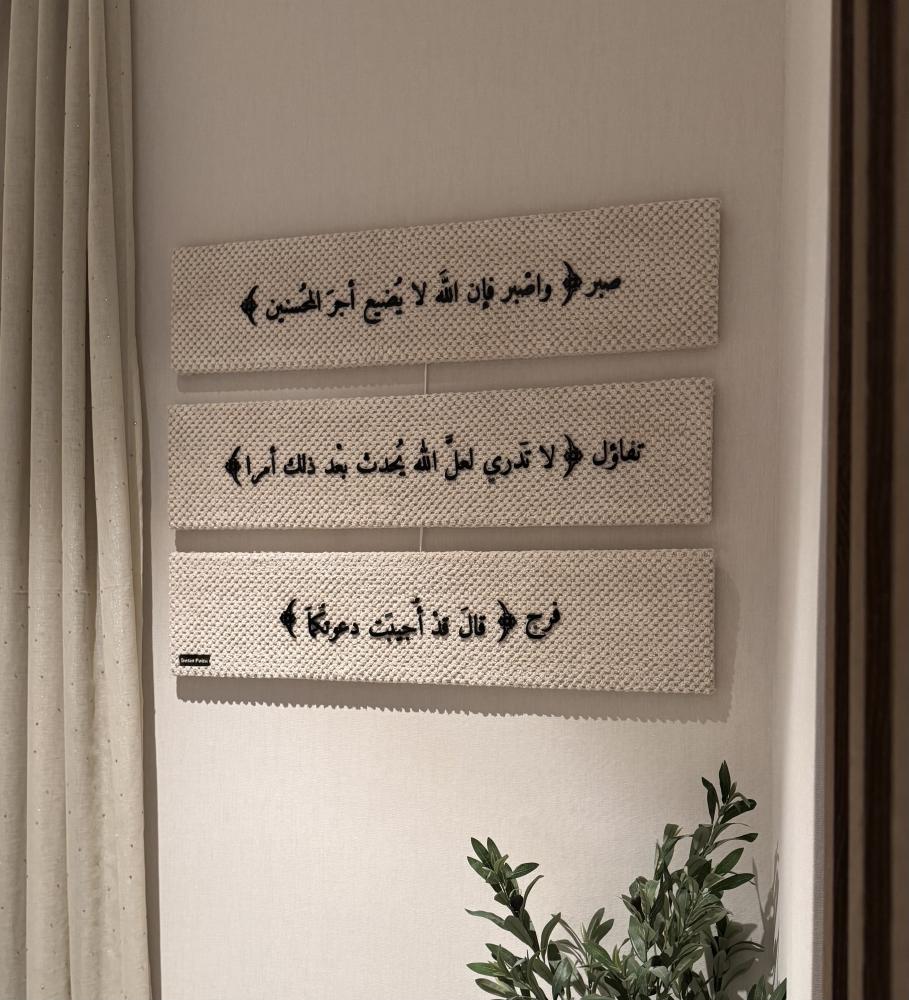 صبر ﴿ واصْبر فإن اللّه لا يُضيع أجرَ المحُسنين ﴾
تفاؤل ﴿ لا تَدري لعلَّ اللّه يُحدث بعْد ذلك أمرا ﴾
فرج ﴿ قالَ قدْ أُجيبَت دعوتُكمَا ﴾